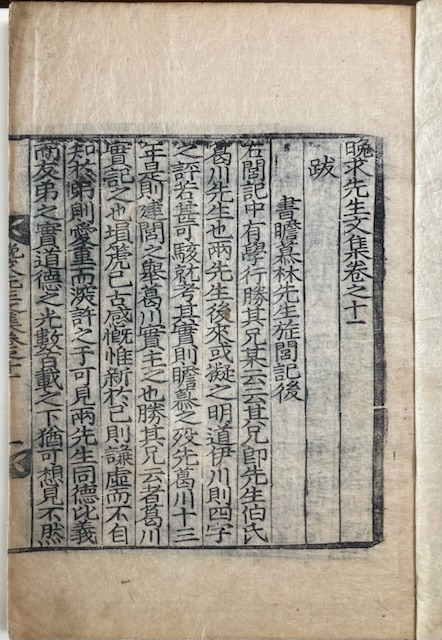 晚求先生文集卷之十一
跋
書瞻慕林先生旌閭記後
右閭記中有學行勝其兄某云云其兄卽先生伯氏
葛川先生也兩先生後來或擬之明道伊川則四字
之評若甚可駭就考其實則瞻慕之歿先葛川十三
年是則建閭之擧葛川實主之也勝其兄云者葛川
實記之也塤箎已古感慨惟新於己則謙虛而不自
知於弟則愛重而深許之子可見兩先生同德比義
而友弟之實道德之光數百載之下猶可想見不然